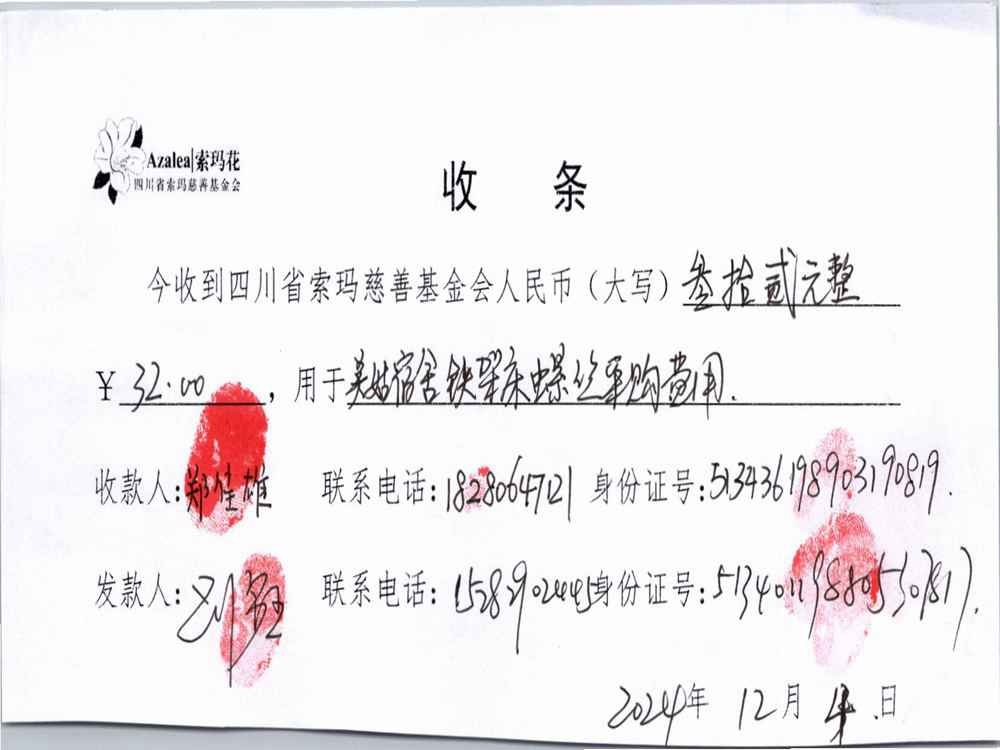 Azalea|索玛花
四川省索玛慈善基金会
收 条
今收到四川省索玛慈善基金会人民币（大写）叁拾贰元整
￥32.00，用于美姑宿舍铁架床螺丝采购费用.
收款人:郑 雄 联系电话:18280647121 身份证号:513436198903190819.
发款人: 联系电话:15282902445身份证号:513401198805307817.
2024年 12月 4.日